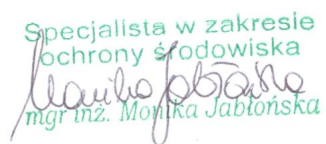 Specjalista w zakresie
ochrony środowiska
Monika Jabłońska
mgr inż. Monika Jabłońska